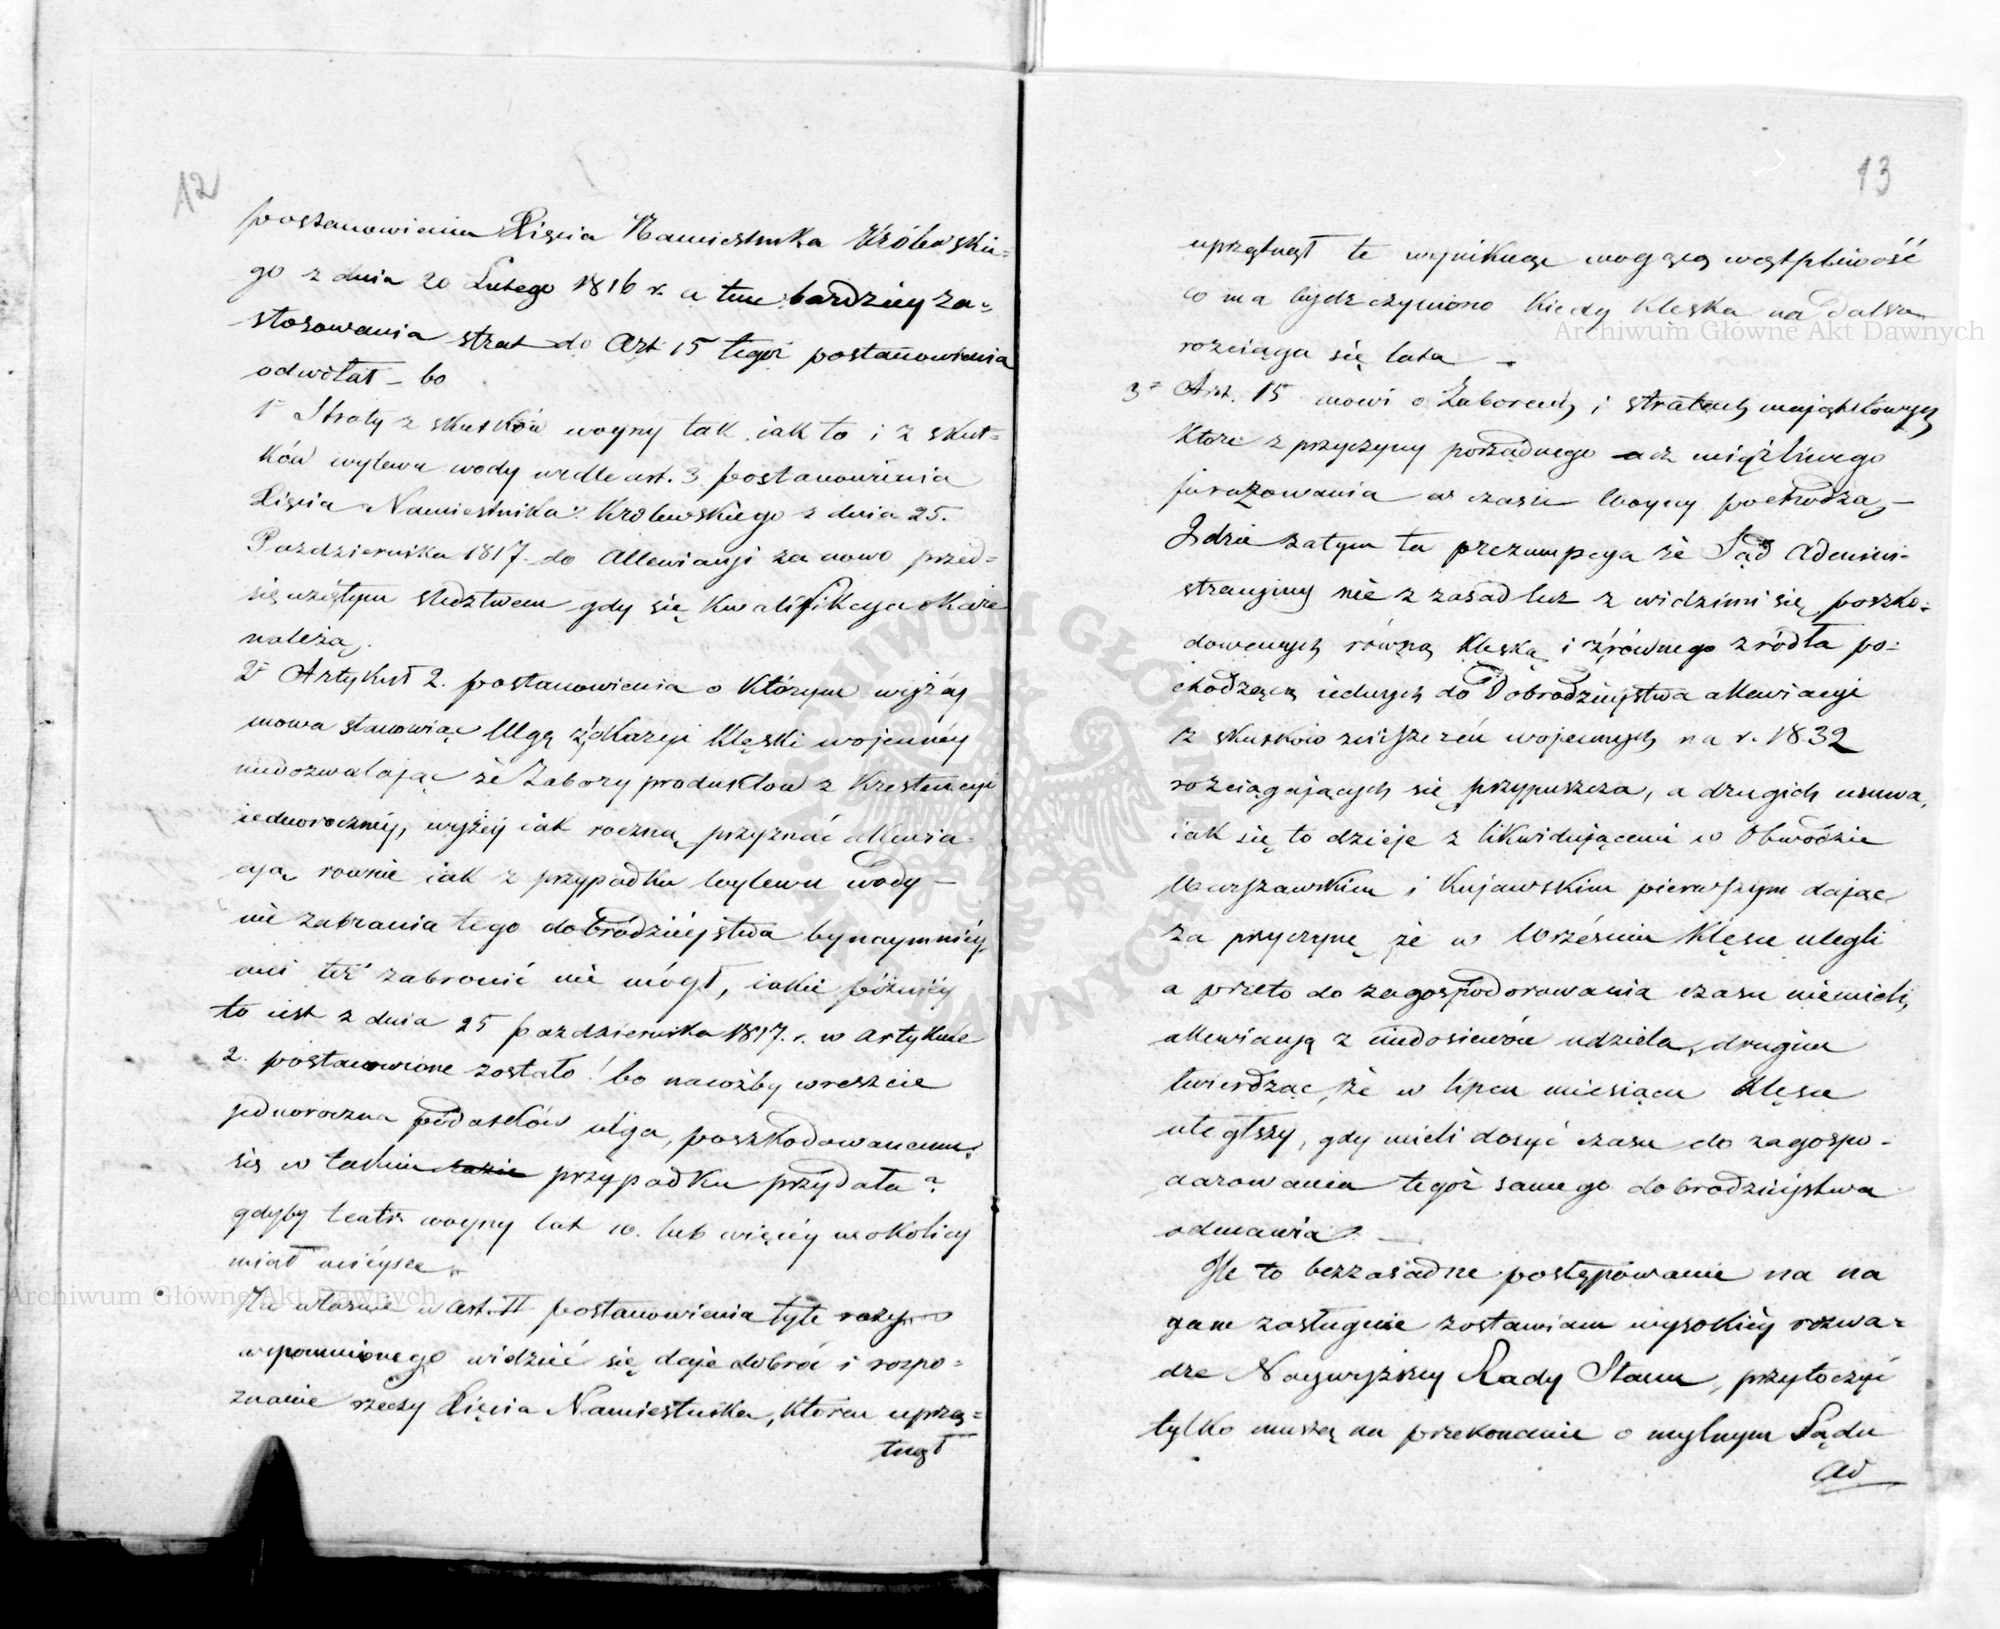 12
postanowienia Xięcia Namiestnika Królewskie=
go z dnia 20 Lutego 1816 r. a tem bardziey za=
stosowania strat do Art 15 tegoż postanowienia
odwołał – bo
1º Straty z skutków woyny tak iak to i z skut=
ków wylewu wody wedle art. 3 postanowienia
Xięcia Namiestnika Królewskiego z dnia 25.
Pazdziernika 1817 do Allewiacyi za nowo przed=
sięwziętym śledztwem gdy się kwalifikacya okaże
należą.
2º Artykuł 2. postanowienia o którym wyżéy
mowa stanowiąc Ulgę z okazyi klęski wojennéy
niedozwalając że Zabory produktow z krestencyi
iednoroczney, wyżéy iak roczną przyznać allewia=
cyą rownie iak z przypadku wylewu wody –
nie zabrania tego dobrodziéjstwa bynaymniéy
ani też zabronić nie mógł, iakie poźniéy
to iest z dnia 25 pazdziernika 1817. r. w artykule
2. postanowione zostało! bo nacóżby wreszcie
jednoroczna podatków ulga, poszkodowanemu
się w takim razie przypadku przydała?
gdyby teatr woyny lat 10. lub więcéy w okolicy
miał mieysce.
Na własne w art. II postanowienia tyle razy
wspomnionego widzieć się daje dobroć i rozpo=
znanie rzeczy Xięcia Namiestnika, którem uprzą=
tnął
13
uprzątnął te wyniknąć mogącą wątpliwość
co ma bydź czyniono kiedy klęska na dalsze
rozciąga się lata –
3º Art. 15 mowi o Zaborach i stratach majątkowych
które z przyczyny porządnego acz uciążliwego
furażowania w czasie woyny pochodzą –
Gdzie zatym ta prezumpcya że Sąd Admini=
stracyiny nie z zasad lecz z widzimi się poszko=
dowanych równą klęską i z równego zródła po=
chodzącą iednych do Dobrodzieystwa allewiacyi
z skutkow zniszczeń wojennych na r. 1832
rozciągających się przypuszcza, a drugich usuwa,
iak się to dzieje z likwidującemi w Obwodzie
Warszawskim i Kujawskim pierwszym dając
za przyczynę że w Wrześniu klęsce ulegli
a przeto do zagospodarowania czasu niemieli,
allewiacyą z niedosiewów udziela, drugim
twierdząc, że w lipcu miesiącu klęsce
uległszy, gdy mieli dosyć czasu do zagospo=
darowania tegoż samego dobrodzieystwa
odmawia. –
Ile to bezzasadne postępowanie na na
ganę zasługuie zostawiam wysokiéy rozwa=
dze Naywyższey Rady Stanu, przytoczyć
tylko muszę na przekonanie o mylnym Sądu
Ad
Archiwum Główne Akt Dawnych
Archiwum Główne Akt Dawnych
ARCHIWUM GŁÓWNE AKT DAWNYCH